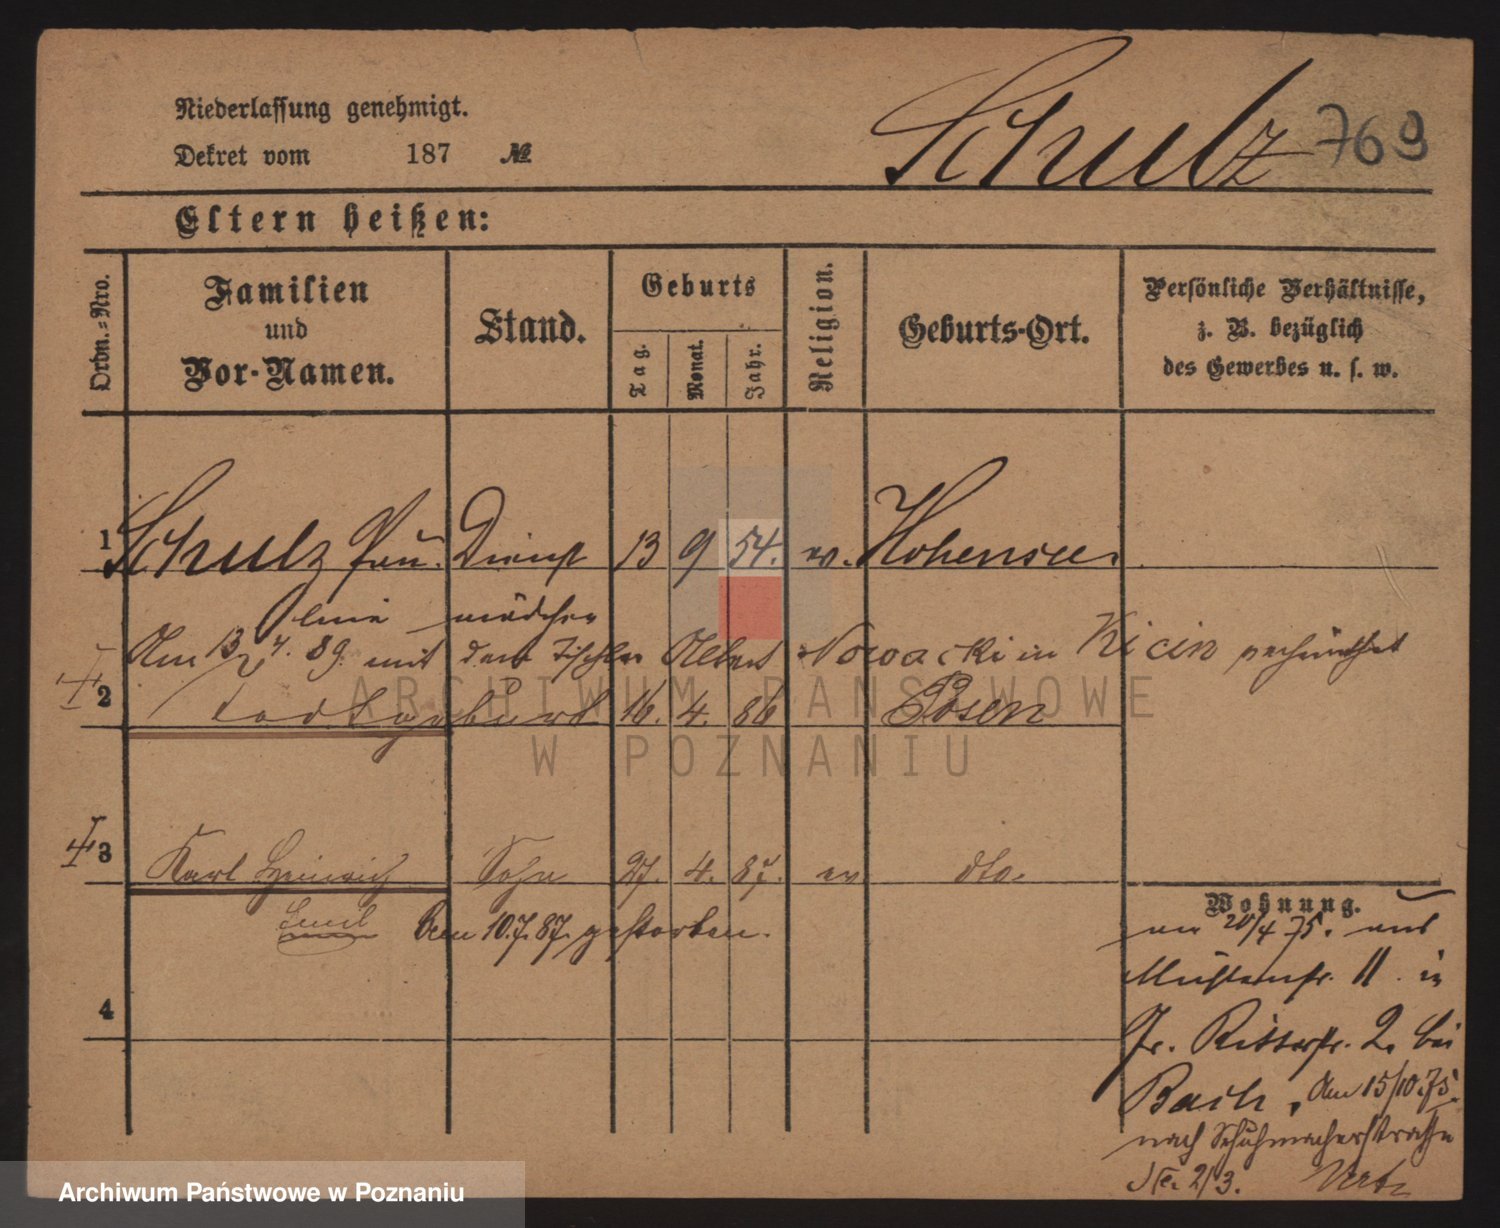 Niederlassung genehmigt.
Dekret vom 187 №
Schulz 769
Eltern heißen:
Ordn.=Nro.
Familien
und
Vor-Namen.
Stand.
Geburts
Tag.
Monat.
Jahr.
Religion.
Geburts-Ort.
Persönliche Verhältnisse,
z. B. bezüglich
des Gewerbes u. s. w.
1 Schulz Pau- Dienst 13 9 54. ev. Hohensee.
line mädchen
Am 13/4. 89. mit dem Tischler Albert Nowacki in Kicin verheirathet
2 todtgeburt 16. 4. 86 Posen
3 Karl Heinrich Sohn 27. 4. 87. ev dto.
Emil Am 10.7.87. gestorben.
4
Wohnung.
am 20/4 75. aus
Mühlenstr. 11. in
Gr. Ritterstr. 2. bei
Bach, Am 15/10.75.
nach Schuhmacherstraße
№ 2/3.
ARCHIWUM PAŃSTWOWE
W POZNANIU
Archiwum Państwowe w Poznaniu